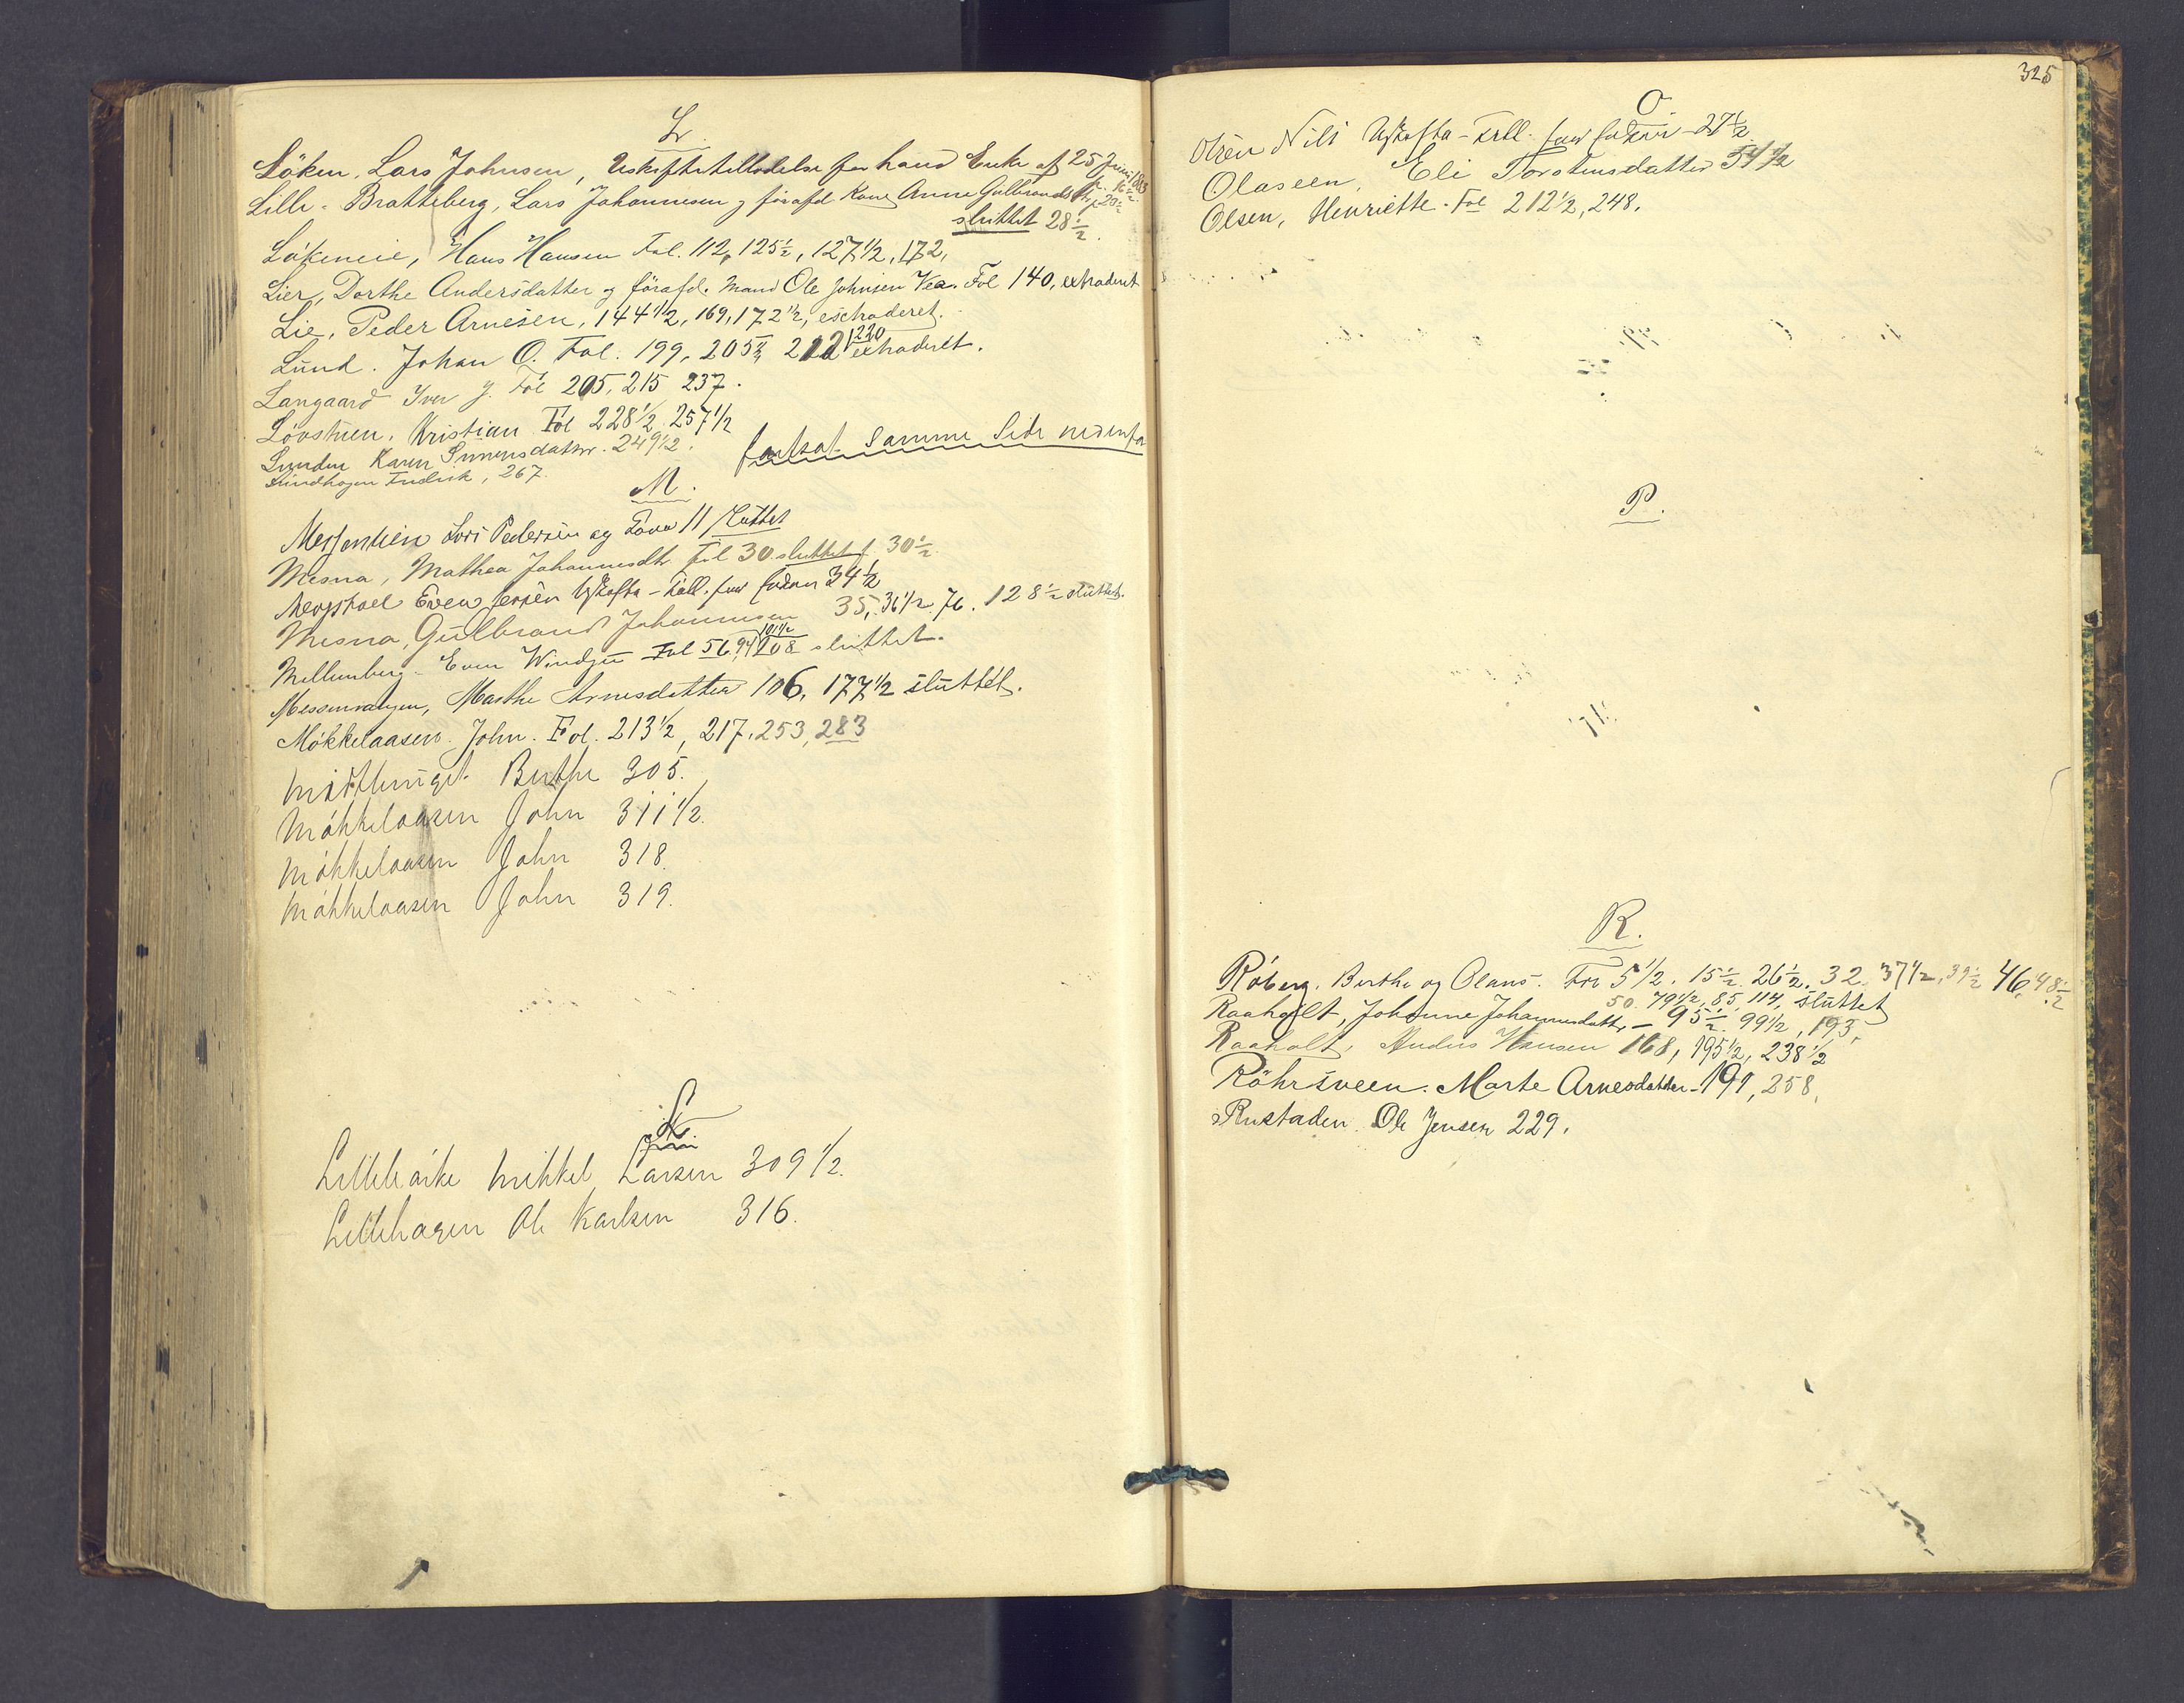 L.
Löken, Lars Johnsen, Uskiftetilladelse for hans Enke af 25 Juni 1883
Lille-Bratteberg, Lars Johannesen og forafd. Kone Anne Gulbrandsd.
sluttet 28 1/2.
Lökeneie, Hans Hansen Fol. 112, 125 1/2, 127 1/2, 172,
Lier, Dorthe Andersdatter og förafd. Mand Ole Johnsen Vea. Fol 140, extraderet
Lie, Peder Arnesen, 144 1/2, 169, 172 1/2, extraderet.
Lund. Johan O. Fol. 199, 205 212 220 extraderet.
Langaard Iver J. Fol 205, 215 237.
Lövstuen, Kristian Fol 228 1/2 257 1/2
Lunden Karen Simensdatter. 249 1/2.
Lundhagen Fredrik, 267.
fortsat samme Side nedenfor
M.
Lars Pedersen og 11 sluttet
Mesna, Mathea Johannesdtr Fol 30. sluttet f. 30 1/2.
Even Jensen Uskifte-Till. 34 1/2
Mesna, Gulbrand Johannesen 35, 36 1/2 76. 128 1/2 sluttet.
Mellumberg Even Fol 56, 94 101 1/2 208 sluttet.
Messenvangen, Marthe Arnesdatter 106, 177 1/2 sluttet.
Mökkelaasen. John. Fol. 213 1/2, 217, 253, 283
Berthe 305.
Mökkelaasen John 311 1/2.
Mökkelaasen John 318.
Mökkelaasen John 319.
L
Mikkel Larsen 309 1/2.
Lillehagen Ole Karlsen 316.
325
O
Olsen Nils Uskifte-Till. 27 1/2
Olaseen, Eli Torstensdatter 54 1/2
Olsen, Henriette. Fol 212 1/2, 248.
P.
R.
Röberg. Berthe og Olaus. Fol 5 1/2. 15 1/2. 26 1/2. 32. 37 1/2, 39 1/2 46, 48 1/2
50. 79 1/2, 85, 114, sluttet
Raaholt, Johanne Johannesdatter - 95 1/2. 99 1/2, 193,
Raaholt, Anders Hansen 168, 195 1/2, 238 1/2
Röhrsveen. Marte Arnesdatter - 191, 258,
Rustaden Ole Jensen 229.